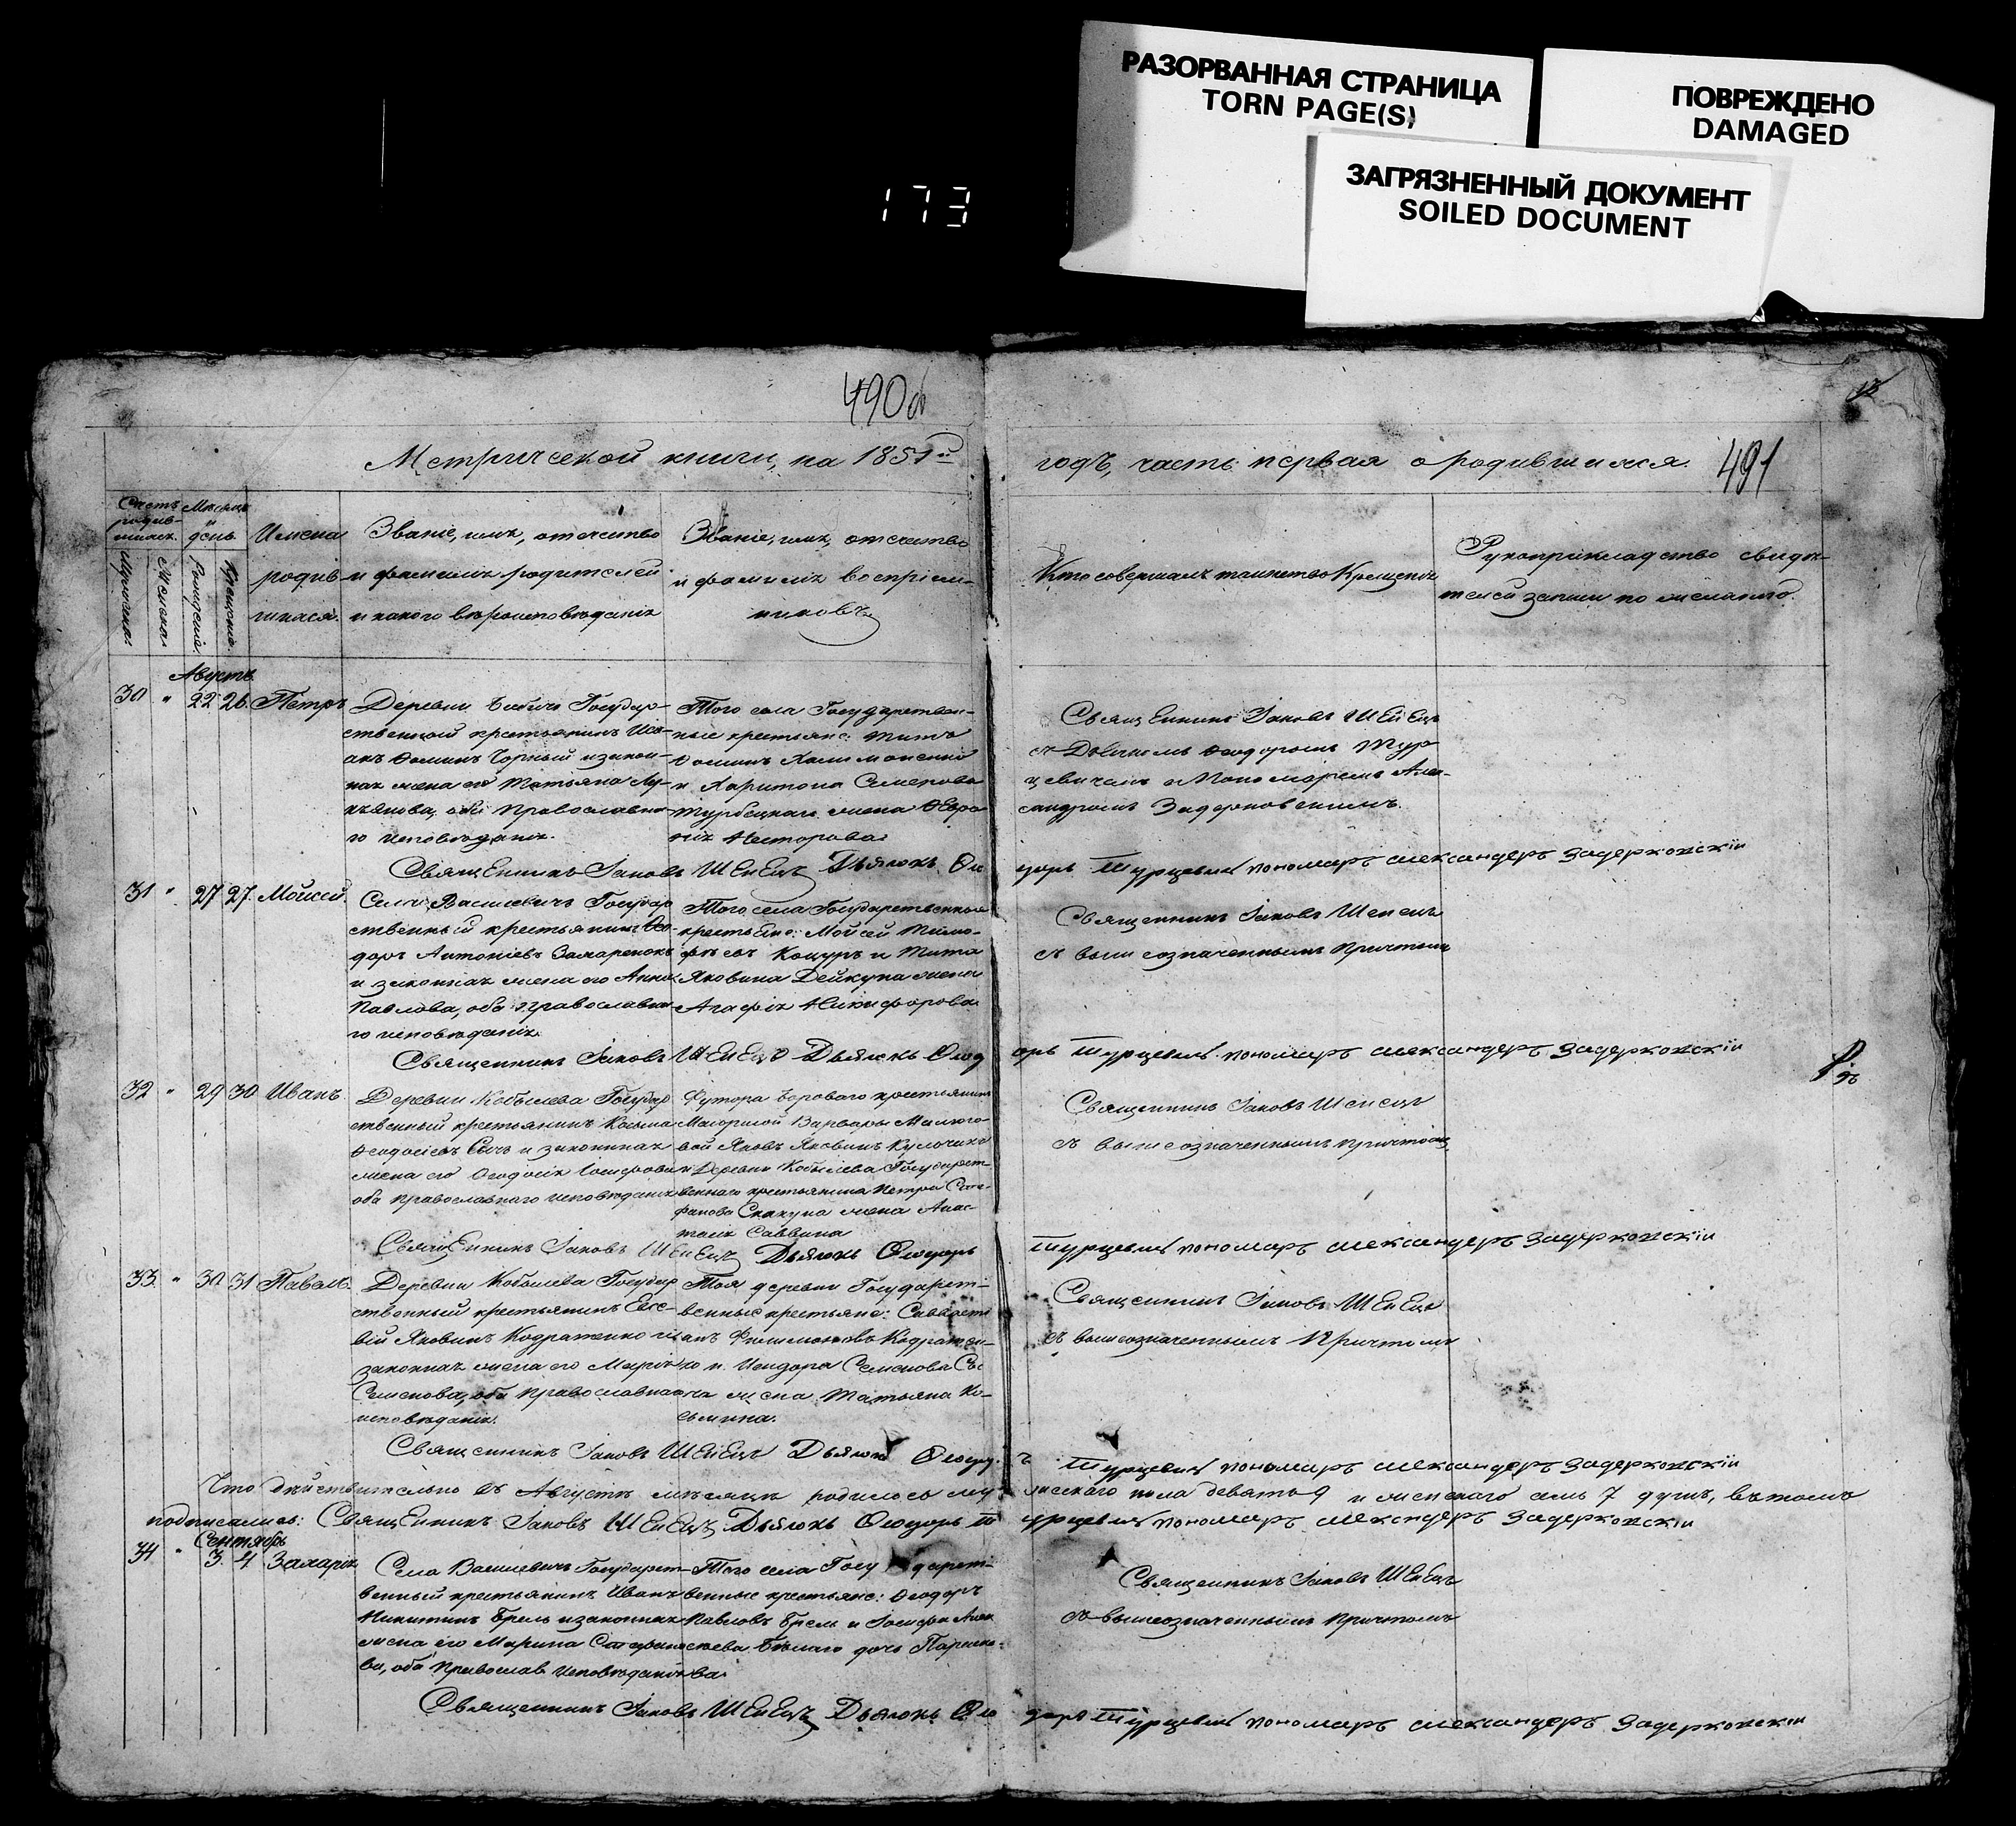 РАЗОРВАННАЯ СТРАНИЦА
TORN PAGE(S)
ПОВРЕЖДЕНО
DAMAGED
ЗАГРЯЗНЕННЫЙ ДОКУМЕНТ
SOILED DOCUMENT
173
490об
Метрической книги, на 1851й
годъ, часть первая о родившихся. 491
Счетъ родив-шихся.
Мѣсяцъ и день.
Мужеска.
Женска
Рожденія
Крещенія.
Имена
родив-
шихся.
Званіе, имя, отчество
и фамилія родителей
и какого вѣроисповѣданія
Званіе, имя, отчество
и фамилія воспріем-
никовъ
Кто совершалъ таинство Крещенія
Рукоприкладство свидѣ-
телей записи по желанію.
Августъ
30 " 22 26 Петръ
Деревни Бабичи Государ-
ственный крестьянинъ
Ѳоминъ Чорный и закон-
ная жена его Татьяна Лу-
кьянова, оба Православна-
го исповѣданія.
Того села Государствен-
ные крестьяне: Титъ
Ѳоминъ
и Харитона Семенова
Турбецкаго жена Февро-
нія Несторова
Священникъ Іаковъ Шенецъ
съ Дьячкомъ Ѳеодоромъ Тур-
цевичемъ Пономаремъ Алек-
сандромъ Задерковскимъ.
Священникъ Іаковъ Шенецъ Дьячокъ Ѳео
доръ Турцевичъ пономаръ александеръ Задерковскій
31 " 27 27 Мойсей.
Села Василевичъ Государ
ственный крестьянинъ Ѳео-
доръ Антоніевъ
и законная жена его Анна
Павлова, оба православна-
го исповѣданія.
Того села Государственные
крестьяне: Мойсей Тимо-
фѣевъ Коцуръ и Тита
Яковина Дейкуна жена
Агафія Никифорова
Священникъ Іаковъ Шенецъ
съ вышеозначеннымъ Причтомъ
Священникъ Іаковъ Шенецъ Дьячокъ Ѳеод
оръ Турцевичъ пономаръ александеръ Задерковскій
32 " 29 30 Иванъ.
Деревни Кобылева Государ
ственный крестьянинъ Козьма
Ѳеодосіевъ Сычъ и законная
жена его Ѳеодосія Іосифова
оба православнаго исповѣданія
Футора Бороваго крестьянинъ
Варвары
вой Яковъ Яковинъ
и Деревни Кобылева Государст-
веннаго крестьянина Петра Сте-
фанова Скакуна жена Анас-
тасія Саввина
Священникъ Іаковъ Шенецъ
съ вышеозначеннымъ причтомъ
Священникъ Іаковъ Шенецъ Дьячокъ Ѳеодоръ
Турцевичъ пономаръ александеръ Задерковскій
33 " 30 31 Павелъ.
Деревни Кобылева Государ
ственный крестьянинъ Евсе-
вій Яковинъ Кодратенко и
законная жена его Марія
Семенова, оба Православнаго
исповѣданія.
Тоя деревни Государст-
венные крестьяне: Саваcті
анъ Филимоновъ Кодратен-
ко и Исидора Семенова Сы-
ча жена Татьяна Ко-
сьмина.
Священникъ Іаковъ Шенецъ
съ вышеозначеннымъ Причтомъ
Священникъ Іаковъ Шенецъ Дьячокъ Ѳеодо
ъ Турцевичъ пономаръ александеръ Задерковскій
Что дѣйствительно въ Августѣ мѣсяцѣ родилось му
жескаго пола девять 9 и женскаго семь 7 душъ, въ томъ
подписались: Священникъ Іаковъ Шенецъ Дьячокъ Ѳеодоръ Т
урцевичъ пономаръ александеръ Задерковскій
Сентябрь
34 " 3. 4 Захарія
Села Василевичъ Государст-
венный крестьянинъ Иванъ
Никитинъ Брель и законная
жена его Марина Стефано-
ва, оба Православ. исповѣданія
Того села Государст-
венные крестьяне: Ѳеодоръ
Павловъ Брель и Іосифа Алек
сѣева Бѣлаго дочь Параске-
ва.
Священникъ Іаковъ Шенецъ
съ вышеозначеннымъ Причтомъ
Священникъ Іаковъ Шенецъ Дьячокъ Ѳео
доръ Турцевичъ пономаръ александеръ Задерковскій